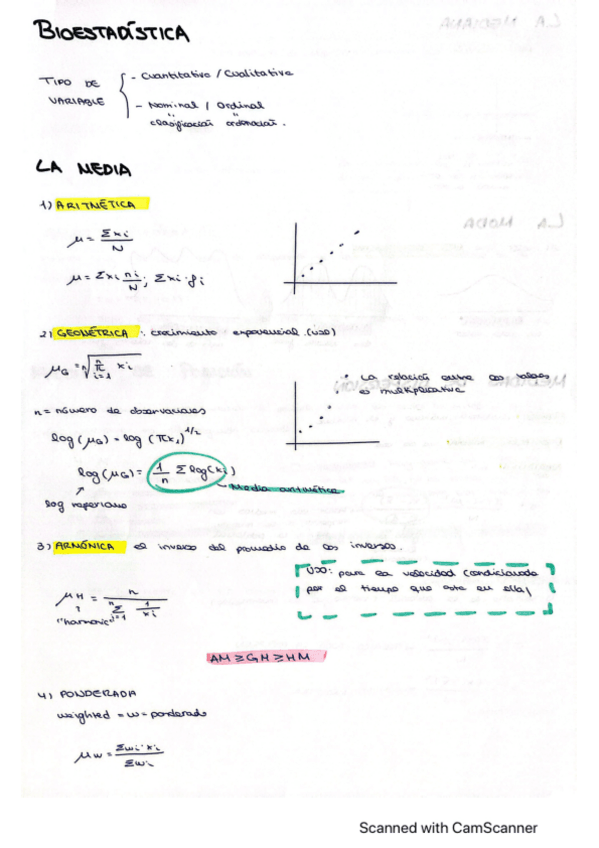 BIOESTADÍSTICA
TIPO DE VARIABLE
- Cuantitativa / Cualitativa
- Nominal / Ordinal
clasificación ordenación.
LA MEDIA
1) ARITMÉTICA
μ = Σxi / N
μ = Σxi ni/N ; Σxi·fi
2) GEOMÉTRICA : crecimiento exponencial (uso)
μG = ⁿ√(ⁿπᵢ₌₁ xi)
La relación entre los valores
es multiplicativa
n = número de observaciones
log(μG) = log(πxi)^1/2
log(μG) = 1/n Σ log(xi)
Media aritmética
log neperiano
3) ARMÓNICA el inverso del promedio de los inversos.
USO: para la velocidad (condicionada
por el tiempo que este en ella)
μH = n / ⁿΣᵢ₌₁ 1/xi
"harmonic"
AM ≥ GM ≥ HM
4) PONDERADA
weighted = w = ponderado
μw = Σwi·xi / Σwi
Scanned with CamScanner